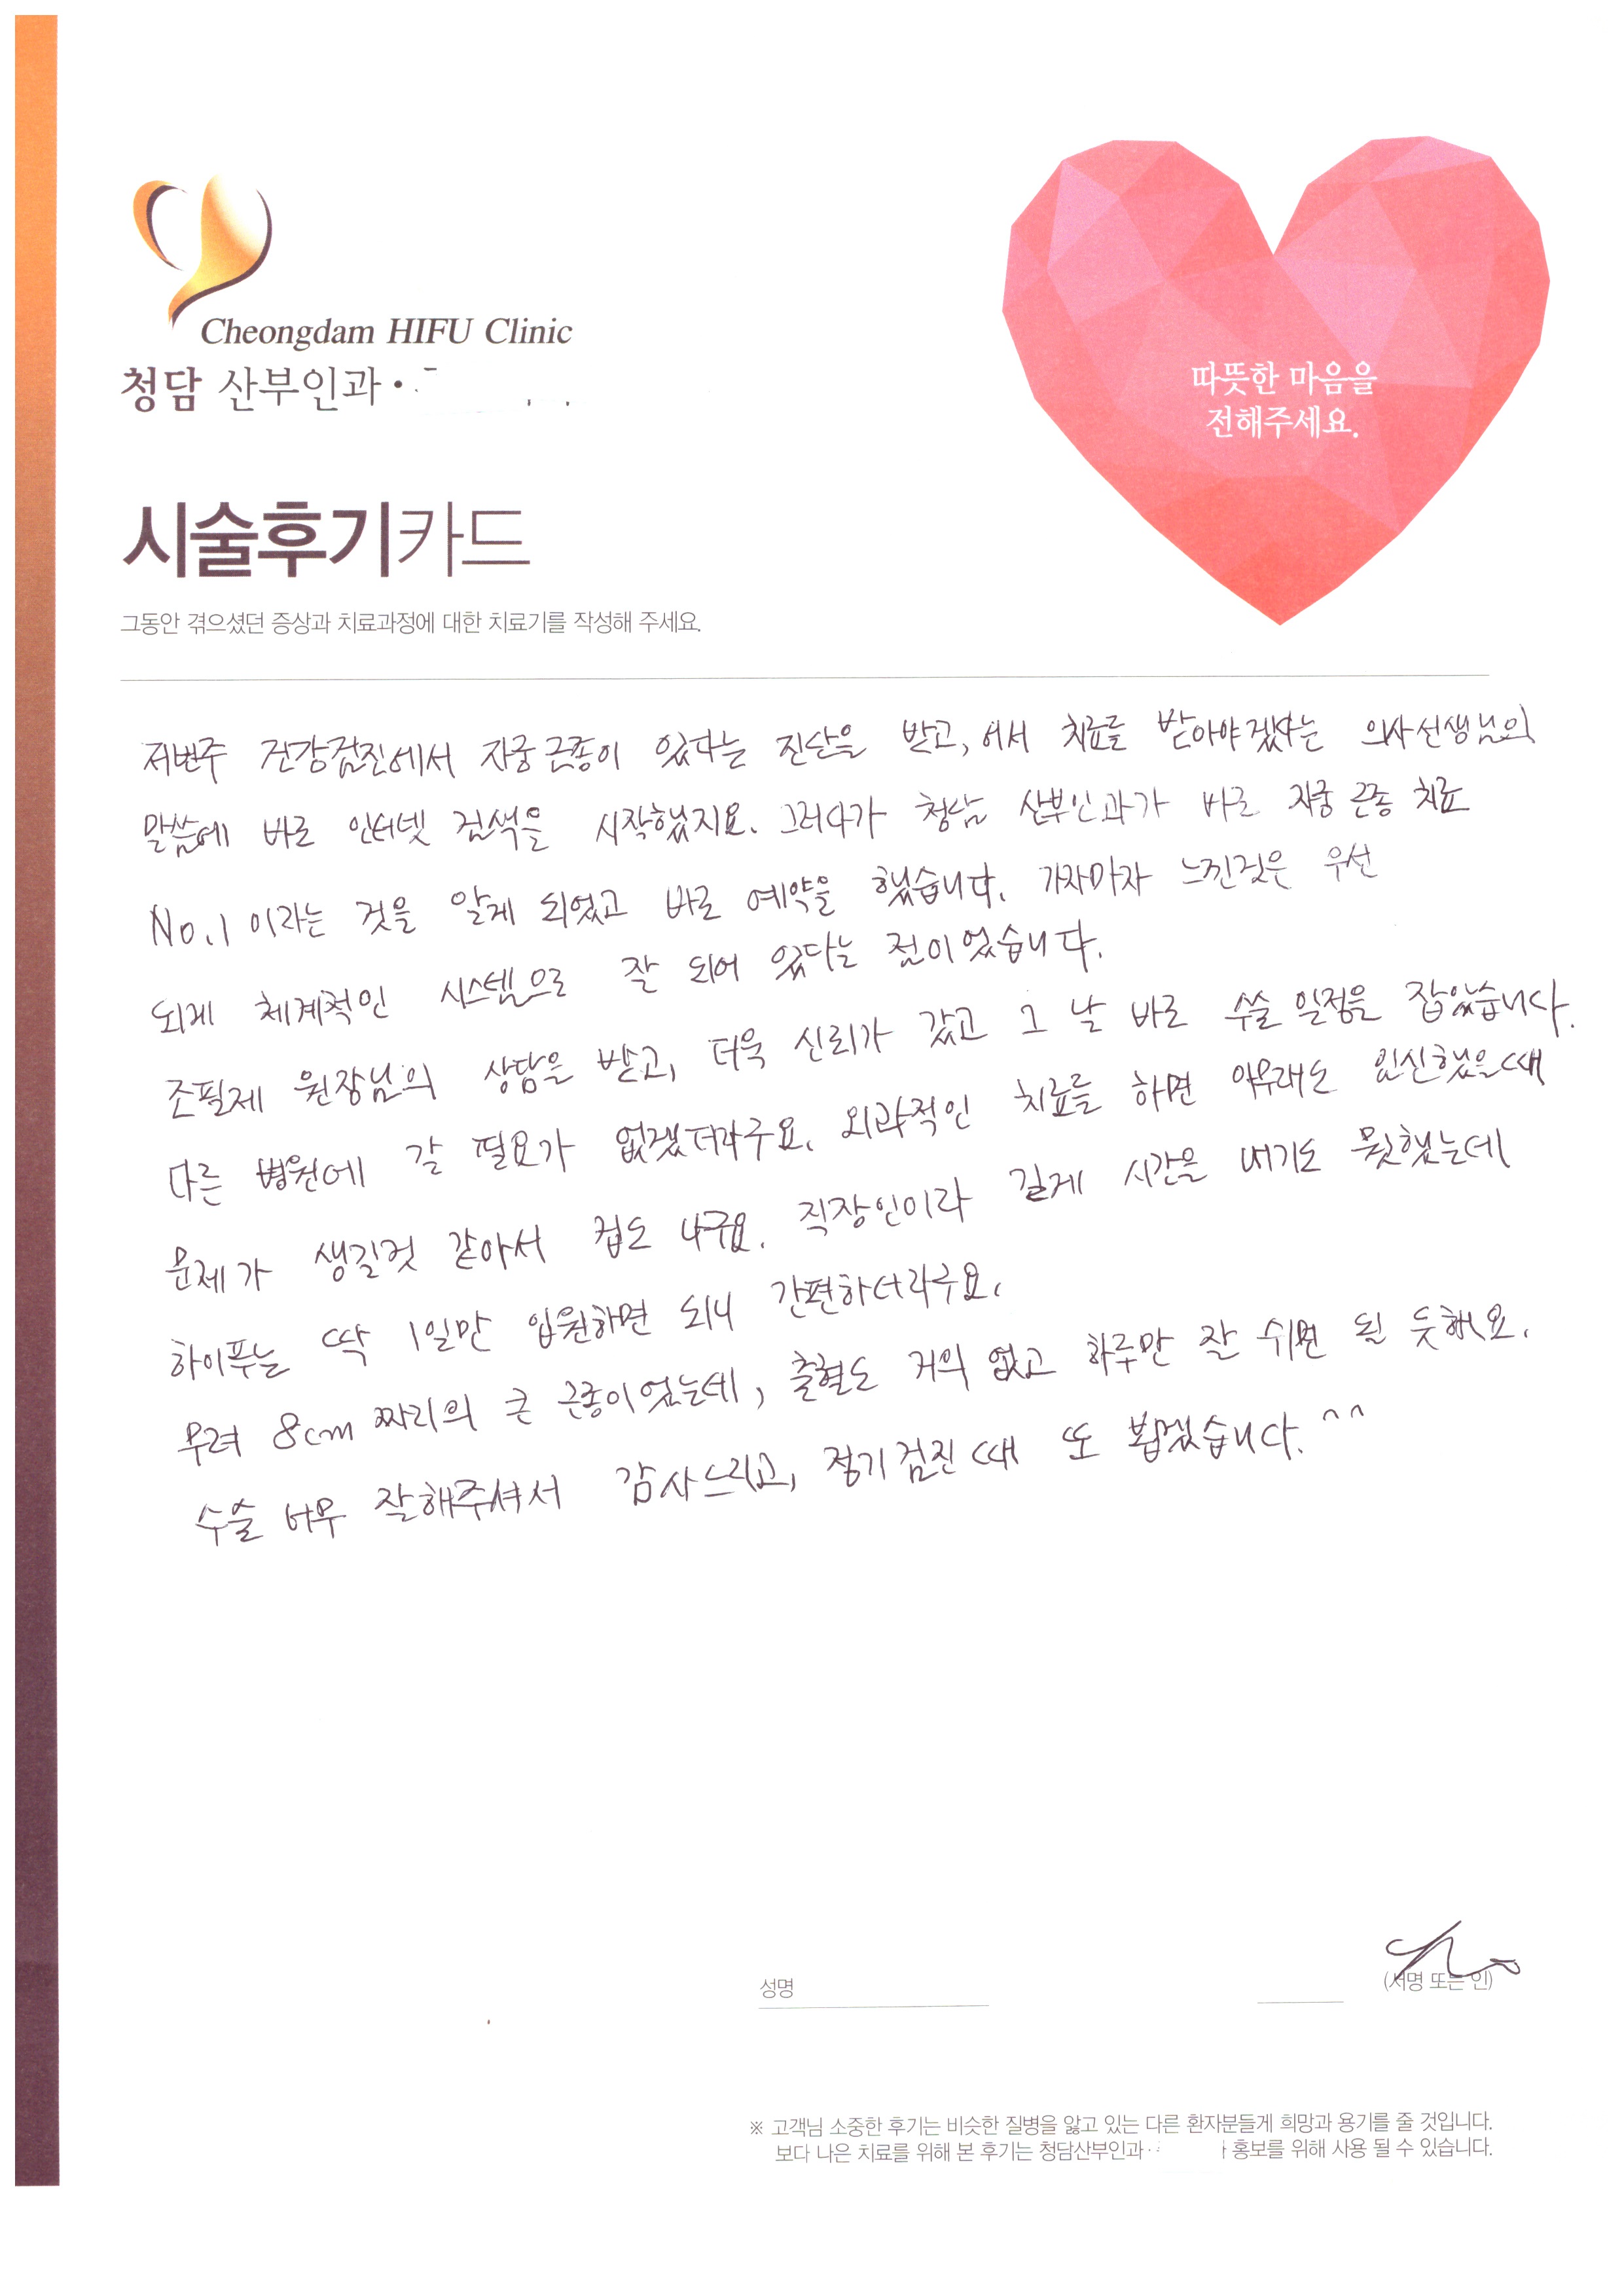 Cheongdam HIFU Clinic
청담 산부인과·
따뜻한 마음을
전해주세요.
시술후기카드
그동안 겪으셨던 증상과 치료과정에 대한 치료기를 작성해 주세요.
저번주 건강검진에서 자궁근종이 있다는 진단을 받고, 어서 치료를 받아야겠다는 의사선생님의
말씀에 바로 인터넷 검색을 시작했지요. 그러다가 청담 산부인과가 바로 자궁 근종 치료
No.1 이라는 것을 알게 되었고 바로 예약을 했습니다. 가자마자 느낀것은 우선
되게 체계적인 시스템으로 잘 되어 있다는 점이었습니다.
조필제 원장님의 상담을 받고, 더욱 신뢰가 갔고 그 날 바로 수술 일정을 잡았습니다.
다른 병원에 갈 필요가 없겠더라구요. 외과적인 치료를 하면 아무래도 임신했을때
문제가 생길것 같아서 겁도 나구요. 직장인이라 길게 시간을 내기도 못했는데
하이푸는 딱 1일만 입원하면 되니 간편하더라구요.
무려 8cm 짜리의 큰 근종이었는데, 출혈도 거의 없고 하루만 잘 쉬면 될 듯해요.
수술 너무 잘해주셔서 감사드리고, 정기검진때 또 뵙겠습니다.^^
성명
(서명 또는 인)
※ 고객님 소중한 후기는 비슷한 질병을 앓고 있는 다른 환자분들게 희망과 용기를 줄 것입니다.
보다 나은 치료를 위해 본 후기는 청담산부인과· 홍보를 위해 사용 될 수 있습니다.